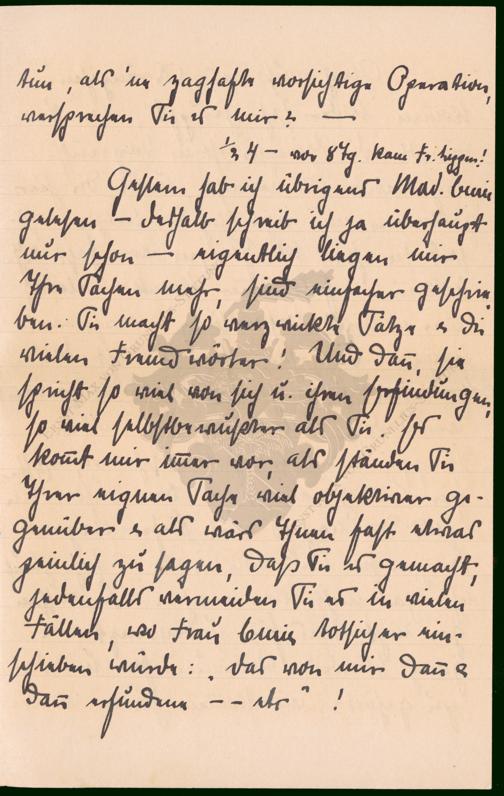 tun, als 'ne zaghafte vorsichtige Operation,
versprechen Sie es mir? —
½ 4 — vor 8 Tg. kam Fr. Lippm!
Gestern hab ich übrigens Mad. Curie
gelesen — deshalb schreib ich ja überhaupt
nur schon — eigentlich liegen mir
Ihre Sachen mehr, sind einfacher geschrie-
ben. Sie macht so verzwickte Sätze & die
vielen Fremdwörter! Und dann, sie
spricht so viel von sich u. ihren Erfindungen,
so viel selbstbewußter als Sie. Es
kom̅t mir im̅er vor, als ständen Sie
Ihrer eignen Sache viel objektiver ge-
genüber & als wärs Ihnen fast etwas
peinlich zu sagen, daß Sie es gemacht,
jedenfalls vermeiden Sie es in vielen
Fällen, wo Frau Curie totsicher ein-
schieben würde: „das von mir dan̅ &
dan̅ erfundene -- etc" !